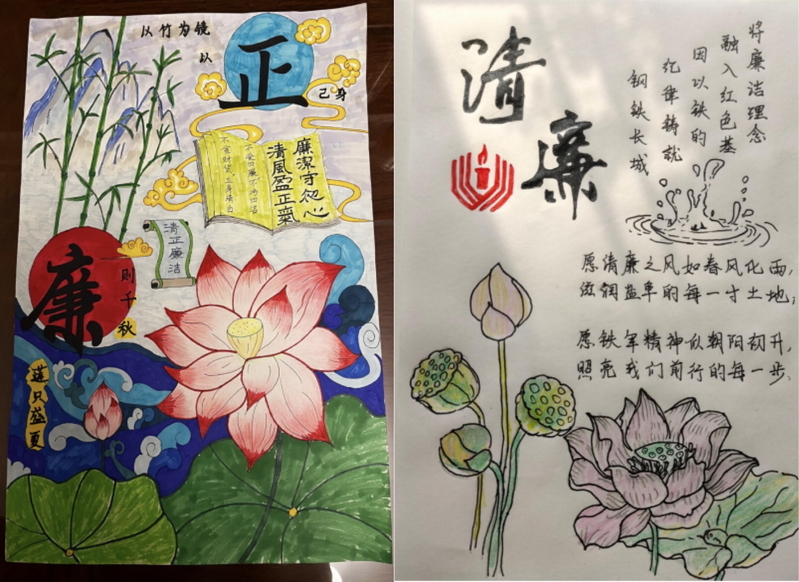 以竹为镜
以
正
己身
廉潔守初心
清風盈正氣
不受曰廉不污曰洁
清正廉洁
廉
则千秋
莲只盛夏
清
廉
将廉洁理念
融入红色基
因以铁的
纪律铸就
钢铁长城
愿清廉之风如春风化雨,
滋润盐阜的每一寸土地;
愿铁军精神似朝阳初升,
照亮我们前行的每一步.